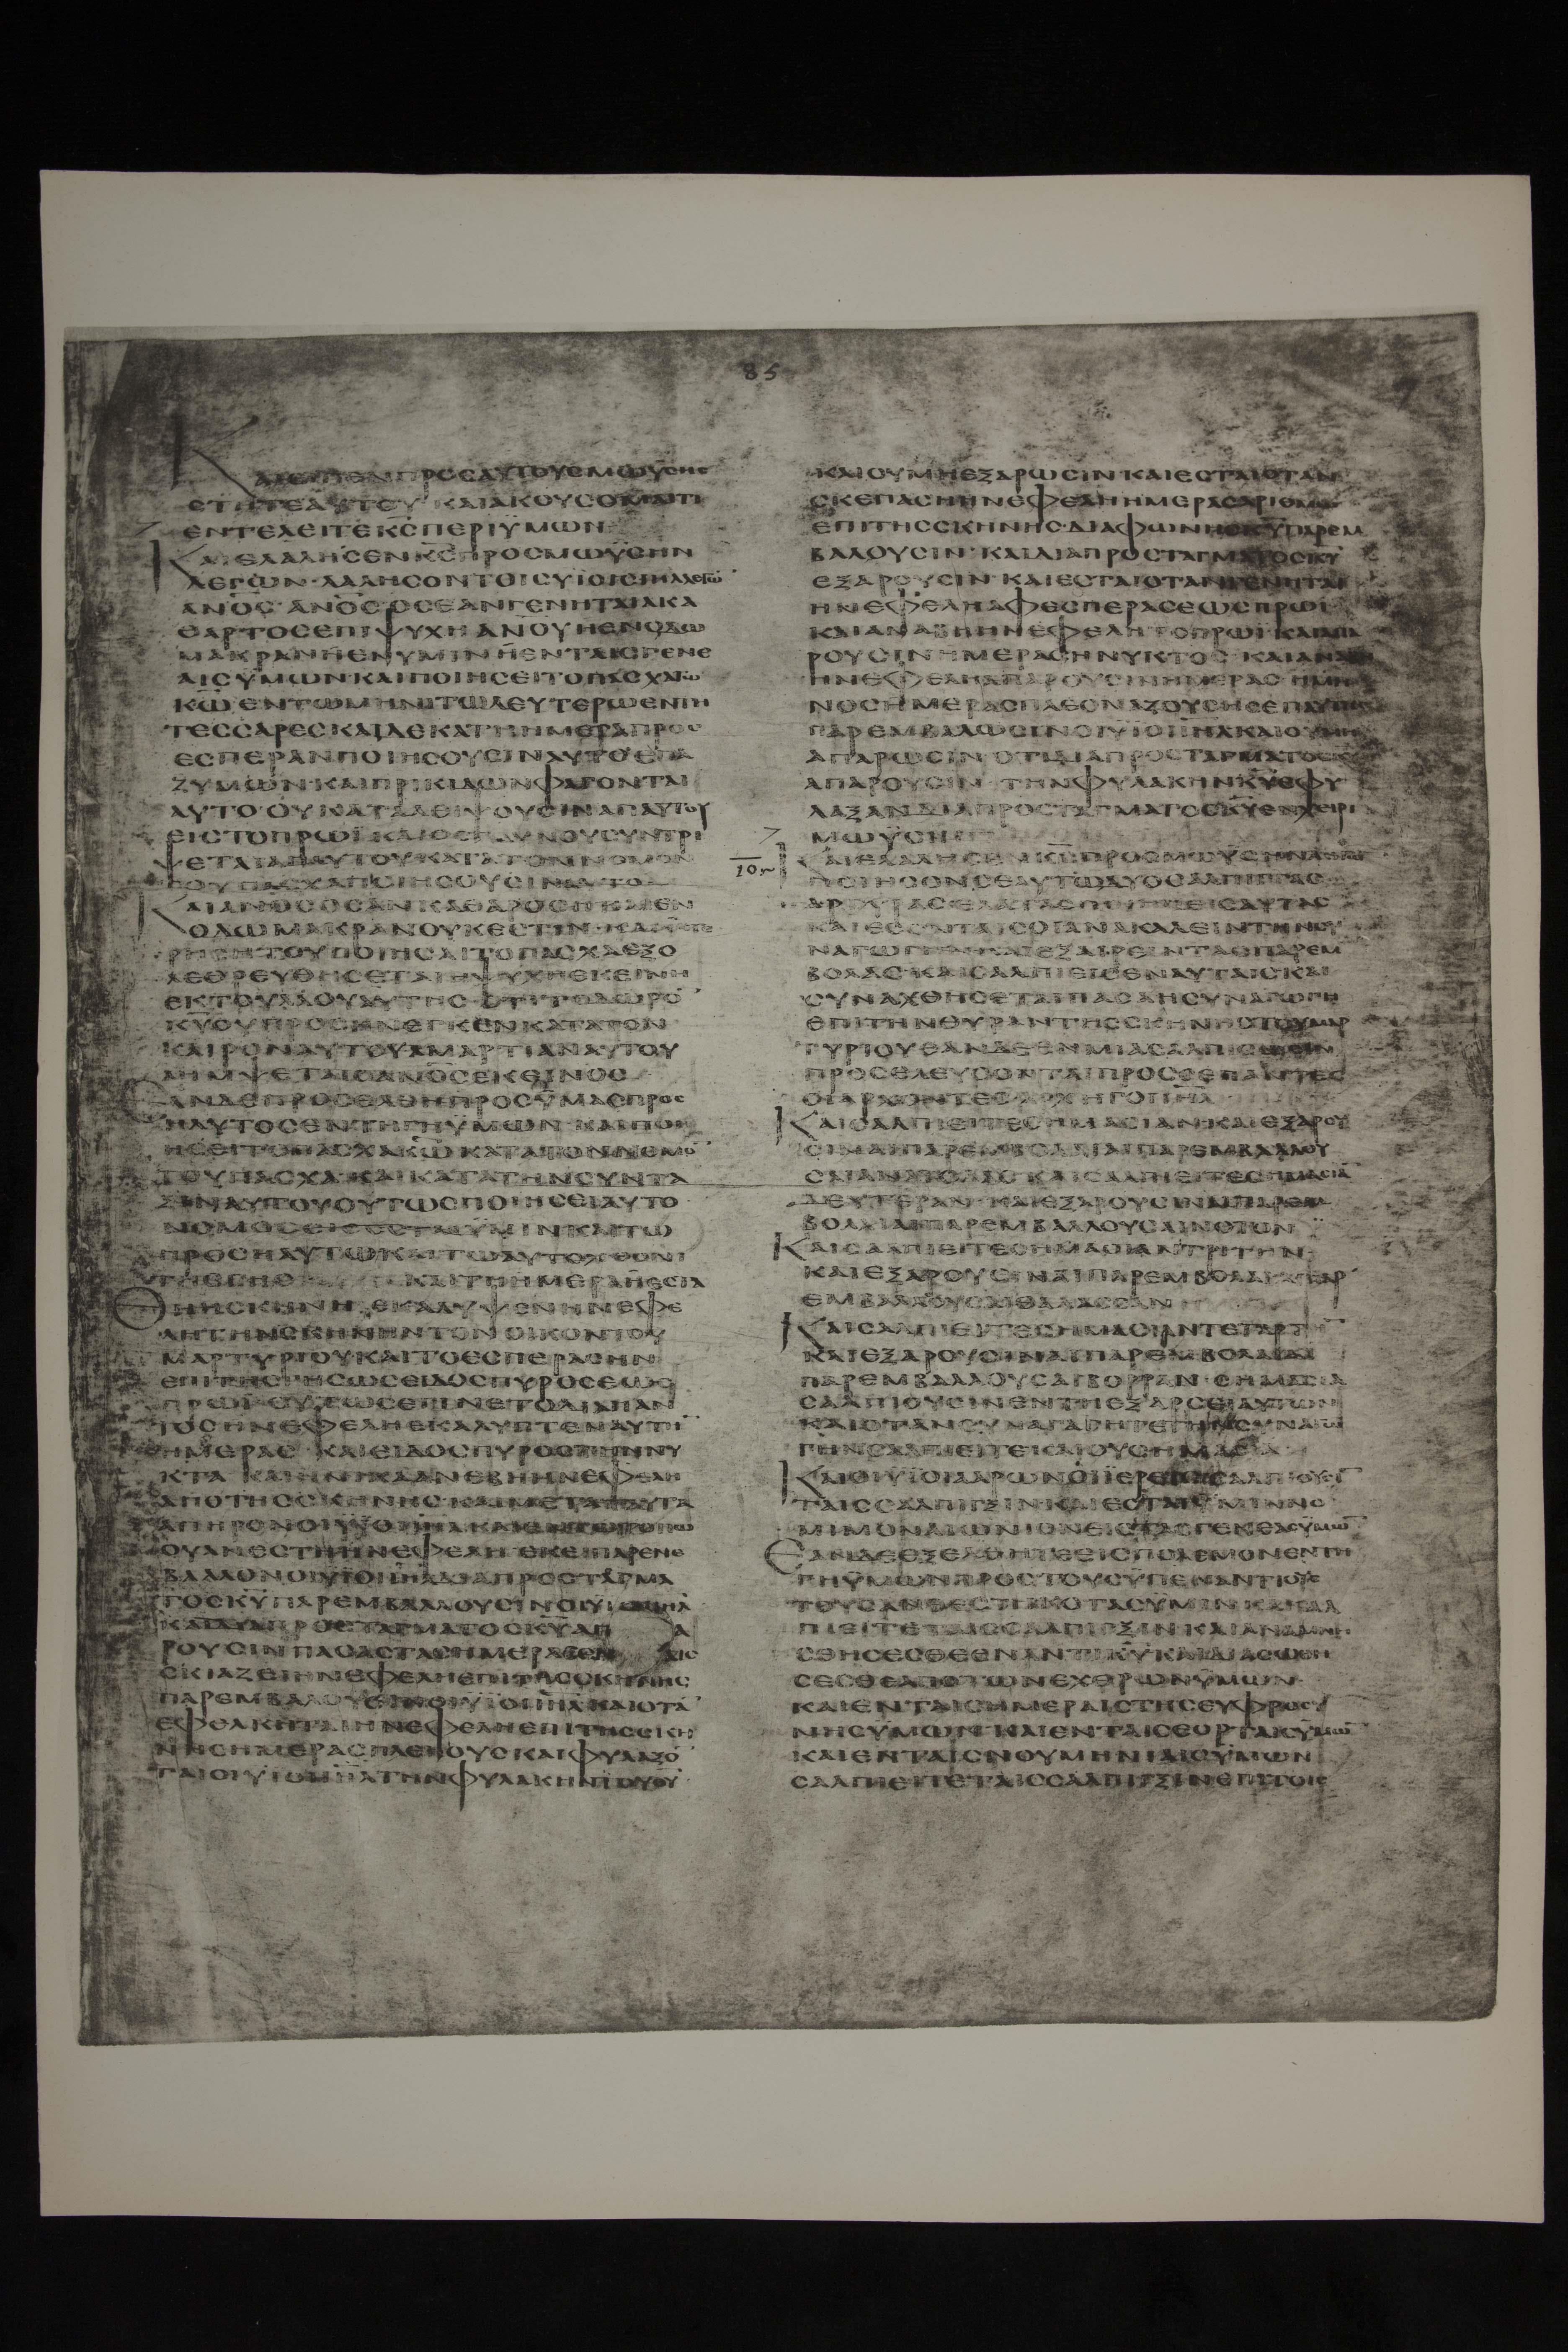 85
ΚΑΙΕΙΠΕΝΠΡΟΣΑΥΤΟΥΣΜΩΫΣΗΣ
ΣΤΗΤΕΑΥΤΟΥ ΚΑΙΑΚΟΥΣΟΜΑΙΤΙ
ΕΝΤΕΛΕΙΤΕΚΣΠΕΡΙΫΜΩΝ
ΚΑΙΕΛΑΛΗΣΕΝΚΣΠΡΟΣΜΩΫΣΗΝ
ΛΕΓΩΝ·ΛΑΛΗΣΟΝΤΟΙΣΫΙΟΙΣΙΗΛΛΕΓΩ
ΑΝΟΣ ΑΝΟΣΟΣΕΑΝΓΕΝΗΤΑΙΑΚΑ
ΘΑΡΤΟΣΕΠΙΨΥΧΗΑΝΟΥΗΕΝΟΔΩ
ΜΑΚΡΑΝΗΕΝΥΜΙΝΗΕΝΤΑΙΣΓΕΝΕ
ΑΙΣΫΜΩΝ·ΚΑΙΠΟΙΗΣΕΙΤΟΠΑΣΧΑΤΩ
ΚΩΕΝΤΩΜΗΝΙΤΩΔΕΥΤΕΡΩΕΝΤΗ
ΤΕΣΣΑΡΕΣΚΑΙΔΕΚΑΤΗΗΜΕΡΑΠΡΟΣ
ΕΣΠΕΡΑΝΠΟΙΗΣΟΥΣΙΝΑΥΤΟΕΠΑ
ΖΥΜΩΝ·ΚΑΙΠΙΚΡΙΔΩΝΦΑΓΟΝΤΑΙ
ΑΥΤΟ ΟΥΚΑΤΑΛΕΙΨΟΥΣΙΝΑΠΑΥΤΟΥ
ΕΙΣΤΟΠΡΩΪ ΚΑΙΟΣΤΟΥΝΟΥΣΥΝΤΡΙ
ΨΕΤΑΙΑΠΑΥΤΟΥΚΑΤΑΤΟΝΝΟΜΟΝ
ΤΟΥΠΑΣΧΑΠΟΙΗΣΟΥΣΙΝΑΥΤΟ
ΚΑΙΑΝΟΣΟΣΑΝΚΑΘΑΡΟΣΗΚΑΙΕΝ
ΟΔΩΜΑΚΡΑΝΟΥΚΕΣΤΙΝ
ΡΗΣΗΤΟΥΠΟΙΗΣΑΙΤΟΠΑΣΧΑΕΞΟ
ΛΕΘΡΕΥΘΗΣΕΤΑΙΗΨΥΧΗΕΚΕΙΝΗ
ΕΚΤΟΥΛΑΟΥΑΥΤΗΣ ΟΤΙΤΟΔΩΡΟ
ΚΥΟΥΠΡΟΣΗΝΕΓΚΕΝΚΑΤΑΤΟΝ
ΚΑΙΡΟΝΑΥΤΟΥΑΜΑΡΤΙΑΝΑΥΤΟΥ
ΛΗΜΨΕΤΑΙΟΑΝΟΣΕΚΕΙΝΟΣ
ΕΑΝΔΕΠΡΟΣΕΛΘΗΠΡΟΣΫΜΑΣΠΡΟΣ
ΗΛΥΤΟΣΕΝΤΗΓΗΥΜΩΝ ΚΑΙΠΟΙ
ΗΣΕΙΤΟΠΑΣΧΑΚΩ ΚΑΤΑΤΟΝΝΟΜΟ
ΤΟΥΠΑΣΧΑ·ΚΑΙΚΑΤΑΤΗΝΣΥΝΤΑ
ΞΙΝΑΥΤΟΥΟΥΤΩΣΠΟΙΗΣΕΙΑΥΤΟ
ΝΟΜΟΣΕΙΣΕΣΤΑΙΫΜΙΝΚΑΙΤΩ
ΠΡΟΣΗΛΥΤΩΚΑΙΤΩΑΥΤΟΧΘΟΝΙ
ΤΗΣΓΗΣ ΚΑΙΤΗΗΜΕΡΑΗΕΣΤΑ
ΘΗΗΣΚΗΝΗ ΕΚΑΛΥΨΕΝΗΝΕΦΕ
ΛΗΤΗΝΣΚΗΝΗΝΤΟΝΟΙΚΟΝΤΟΥ
ΜΑΡΤΥΡΙΟΥΚΑΙΤΟΕΣΠΕΡΑΣΗΝ
ΕΠΙΤΗΣΣΚΗΝΗΣΩΣΕΙΔΟΣΠΥΡΟΣΕΩΣ
ΠΡΩΪ ΟΥΤΩΣΕΓΙΝΕΤΟΔΙΑΠΑΝ
ΤΟΣΗΝΕΦΕΛΗΕΚΑΛΥΠΤΕΝΑΥΤΗ
ΗΜΕΡΑΣ ΚΑΙΕΙΔΟΣΠΥΡΟΣΤΗΝΝΥ
ΚΤΑ ΚΑΙΗΝΙΚΑΑΝΕΒΗΗΝΕΦΕΛΗ
ΑΠΟΤΗΣΣΚΗΝΗΣ·ΚΑΙΜΕΤΑΤΑΥΤΑ
ΑΠΗΡΟΝΟΙΫΙΟΙΙΗΛ·ΚΑΙΕΝΤΩΤΟΠΩ
ΟΥΑΝΕΣΤΗΗΝΕΦΕΛΗ ΕΚΕΙΠΑΡΕΝΕ
ΒΑΛΛΟΝΟΙΫΙΟΙΙΗΛΔΙΑΠΡΟΣΤΑΓΜΑ
ΤΟΣΚΫΠΑΡΕΜΒΑΛΟΥΣΙΝΟΙΫΙΟΙΙΗΛ
ΚΑΙΔΙΑΠΡΟΣΤΑΓΜΑΤΟΣΚΥΑΠΑ
ΡΟΥΣΙΝ ΠΑΣΑΣΤΑΣΗΜΕΡΑΣΕΝΑΙΣ
ΣΚΙΑΖΕΙΗΝΕΦΕΛΗΕΠΙΤΗΣΣΚΗΝΗΣ
ΠΑΡΕΜΒΑΛΟΥΣΙΝΟΙΫΙΟΙΙΗΛ ΚΑΙΟΤΑ
ΕΦΕΛΚΗΤΑΙΗΝΕΦΕΛΗΕΠΙΤΗΣΣΚΗ
ΝΗΣΗΜΕΡΑΣΠΛΕΙΟΥΣΚΑΙΦΥΛΑΞΟ
ΤΑΙΟΙΫΙΟΙΙΗΛΤΗΝΦΥΛΑΚΗΝΤΟΥΘΥ
ΚΑΙΟΥΜΗΕΞΑΡΩΣΙΝΚΑΙΕΣΤΑΙΟΤΑΝ
ΣΚΕΠΑΣΗΗΝΕΦΕΛΗΗΜΕΡΑΣΑΡΙΘΜΩ
ΕΠΙΤΗΣΣΚΗΝΗΣ·ΔΙΑΦΩΝΗΣΚΥΠΑΡΕΜ
ΒΑΛΟΥΣΙΝ·ΚΑΙΔΙΑΠΡΟΣΤΑΓΜΑΤΟΣΚΥ
ΕΞΑΡΟΥΣΙΝ·ΚΑΙΕΣΤΑΙΟΤΑΝΓΕΝΗΤΑΙ
ΗΝΕΦΕΛΗΑΦΕΣΠΕΡΑΣΕΩΣΠΡΩΪ
ΚΑΙΑΝΑΒΗΗΝΕΦΕΛΗΤΟΠΡΩΪ ΚΑΙΑΠΑ
ΡΟΥΣΙΝΗΜΕΡΑΣΗΝΥΚΤΟΣ·ΚΑΙΑΝΑΒΗ
ΗΝΕΦΕΛΗΑΠΑΡΟΥΣΙΝΗΜΕΡΑΣ ΗΜΗ
ΝΟΣΗΜΕΡΑΣΠΛΕΟΝΑΖΟΥΣΗΣΕΠΑΥΤΗΣ
ΠΑΡΕΜΒΑΛΩΣΙΝΟΙΫΙΟΙΙΗΛΚΑΙΟΥΜΗ
ΑΠΑΡΩΣΙΝ ΟΤΙΔΙΑΠΡΟΣΤΑΓΜΑΤΟΣΚΥ
ΑΠΑΡΟΥΣΙΝ·ΤΗΝΦΥΛΑΚΗΝΚΥΕΦΥ
ΛΑΞΑΝΔΙΑΠΡΟΣΤΑΓΜΑΤΟΣΚΥΕΝΧΕΙΡΙ
ΜΩΫΣΗ
10
ΚΑΙΕΛΑΛΗΣΕΝΚΣΠΡΟΣΜΩΫΣΗΝΛΕΓΩΝ
ΠΟΙΗΣΟΝΣΕΑΥΤΩΔΥΟΣΑΛΠΙΓΓΑΣ
ΑΡΓΥΡΑΣΕΛΑΤΑΣΠΟΙΗΣΕΙΣΑΥΤΑΣ
ΚΑΙΕΣΟΝΤΑΙΣΟΙΑΝΑΚΑΛΕΙΝΤΗΝΣΥ
ΝΑΓΩΓΗΝΚΑΙΕΞΑΙΡΕΙΝΤΑΣΠΑΡΕΜ
ΒΟΛΑΣ·ΚΑΙΣΑΛΠΙΕΙΣΕΝΑΥΤΑΙΣΚΑΙ
ΣΥΝΑΧΘΗΣΕΤΑΙΠΑΣΑΗΣΥΝΑΓΩΓΗ
ΕΠΙΤΗΝΘΥΡΑΝΤΗΣΣΚΗΝΗΣΤΟΥΜΑΡ
ΤΥΡΙΟΥΕΑΝΔΕΕΝΜΙΑΣΑΛΠΙΣΩΣΙΝ
ΠΡΟΣΕΛΕΥΣΟΝΤΑΙΠΡΟΣΣΕΠΑΝΤΕΣ
ΟΙΑΡΧΟΝΤΕΣΑΡΧΗΓΟΙΙΗΛ
ΚΑΙΣΑΛΠΙΕΙΤΕΣΗΜΑΣΙΑΝ·ΚΑΙΕΞΑΡΟΥ
ΣΙΝΑΙΠΑΡΕΜΒΟΛΑΙΑΙΠΑΡΕΜΒΑΛΛΟΥ
ΣΑΙΑΝΑΤΟΛΑΣ ΚΑΙΣΑΛΠΙΕΙΤΕΣΗΜΑΣΙΑ
ΔΕΥΤΕΡΑΝ·ΚΑΙΕΞΑΡΟΥΣΙΝΑΙΠΑΡΕΜ
ΒΟΛΑΙΑΙΠΑΡΕΜΒΑΛΛΟΥΣΑΙΝΟΤΟΝ
ΚΑΙΣΑΛΠΙΕΙΤΕΣΗΜΑΣΙΑΝΤΡΙΤΗΝ
ΚΑΙΕΞΑΡΟΥΣΙΝΑΙΠΑΡΕΜΒΟΛΑΙΑΙΠΑΡ
ΕΜΒΑΛΛΟΥΣΑΙΘΑΛΑΣΣΑΝ
ΚΑΙΣΑΛΠΙΕΙΤΕΣΗΜΑΣΙΑΝΤΕΤΑΡΤΗ
ΚΑΙΕΞΑΡΟΥΣΙΝΑΙΠΑΡΕΜΒΟΛΑΙΑΙ
ΠΑΡΕΜΒΑΛΛΟΥΣΑΙΒΟΡΡΑΝ·ΣΗΜΑΣΙΑ
ΣΑΛΠΙΟΥΣΙΝΕΝΤΗΕΞΑΡΣΕΙΑΥΤΩΝ
ΚΑΙΟΤΑΝΣΥΝΑΓΑΓΗΤΕΤΗΝΣΥΝΑΓΩ
ΓΗΝΣΑΛΠΙΕΙΤΕΚΑΙΟΥΣΗΜΑΣΙΑ
ΚΑΙΟΙΫΙΟΙΑΑΡΩΝΟΙΪΕΡΕΙΣΣΑΛΠΙΟΥΣΙ
ΤΑΙΣΣΑΛΠΙΓΞΙΝΚΑΙΕΣΤΑΙΫΜΙΝΝΟ
ΜΙΜΟΝΑΙΩΝΙΟΝΕΙΣΤΑΣΓΕΝΕΑΣΫΜΩ
ΕΑΝΔΕΕΞΕΛΘΗΤΕΕΙΣΠΟΛΕΜΟΝΕΝΤΗ
ΓΗΫΜΩΝΠΡΟΣΤΟΥΣΫΠΕΝΑΝΤΙΟΥΣ
ΤΟΥΣΑΝΘΕΣΤΗΚΟΤΑΣΥΜΙΝ ΚΑΙΣΑΛ
ΠΙΕΙΤΕΤΑΙΣΣΑΛΠΙΓΞΙΝΚΑΙΑΝΑΜΝΗ
ΣΘΗΣΕΣΘΕΕΝΑΝΤΙΚΥΚΑΙΔΙΑΣΩΘΗ
ΣΕΣΘΕΑΠΟΤΩΝΕΧΘΡΩΝΫΜΩΝ
ΚΑΙΕΝΤΑΙΣΗΜΕΡΑΙΣΤΗΣΕΥΦΡΟΣΥ
ΝΗΣΫΜΩΝ ΚΑΙΕΝΤΑΙΣΕΟΡΤΑΙΣΫΜΩ
ΚΑΙΕΝΤΑΙΣΝΟΥΜΗΝΙΑΙΣΫΜΩΝ
ΣΑΛΠΙΕΙΤΕΤΑΙΣΣΑΛΠΙΓΞΙΝΕΠΙΤΟΙΣ